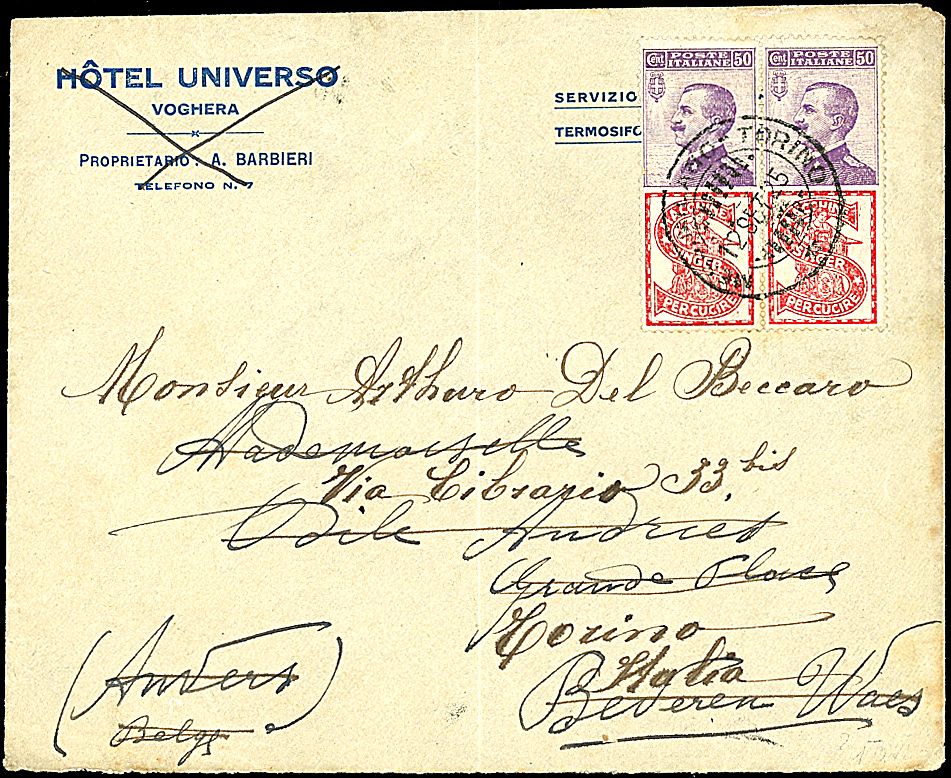 HÔTEL UNIVERSO
VOGHERA
PROPRIETARIO: A. BARBIERI
TELEFONO N. 7
SERVIZIO
TERMOSIFO
Cent POSTE ITALIANE 50
Cent POSTE ITALIANE 50
TORINO
12 SET 25
MACCHINE SINGER PER CUCIRE
MACCHINE SINGER PER CUCIRE
Monsieur Arthuro Del Beccaro
Mademoiselle
Via Cibrario 33, bis
Odile Andries
Grande Place
Torino
Italia
Beveren Waes
(Anvers)
Belg.